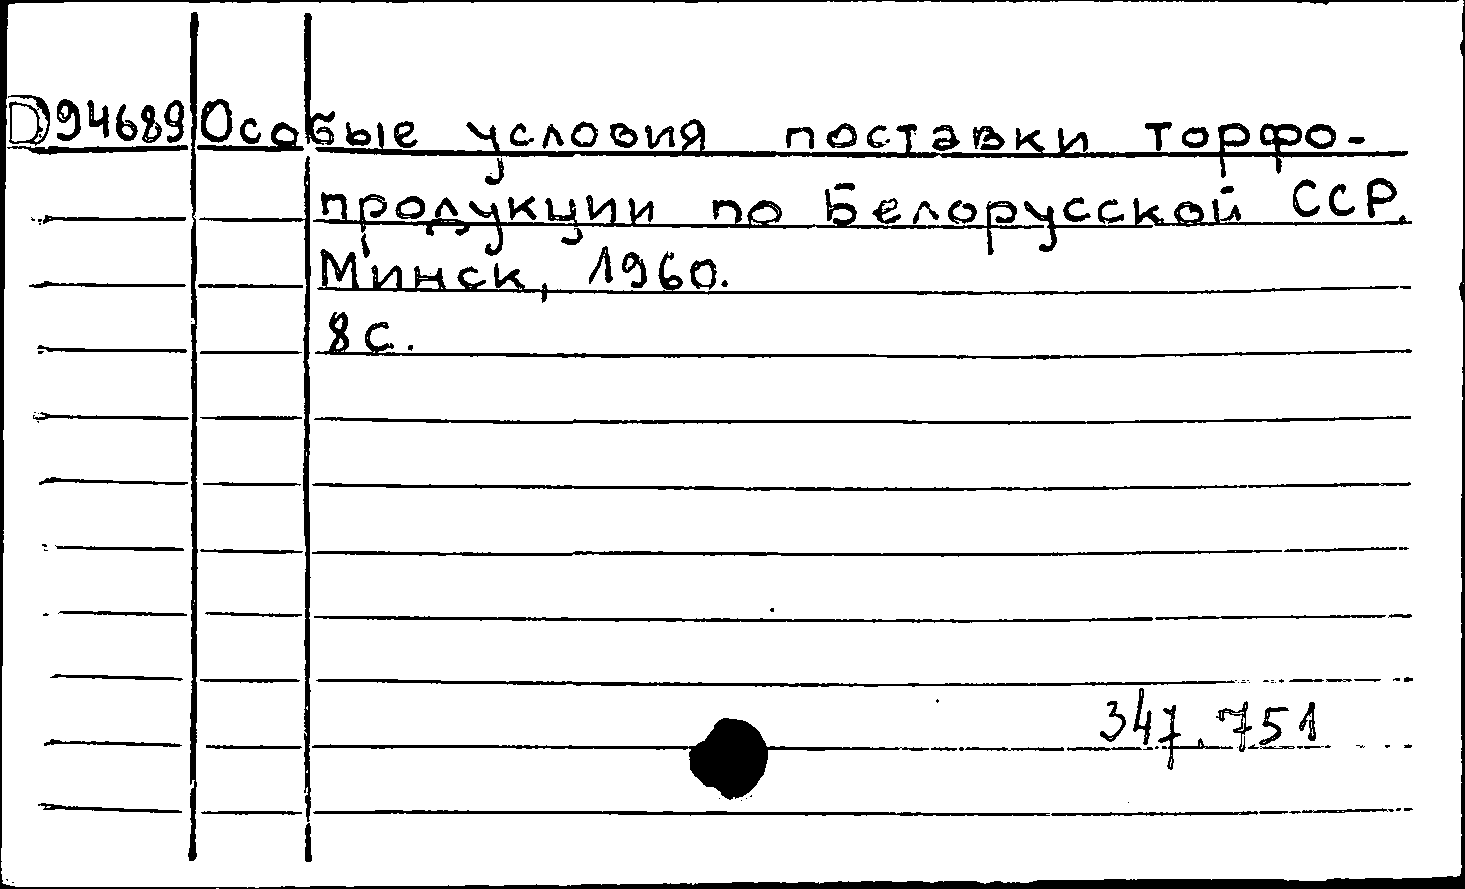 D94689 Особые условия поставки торфо-
продукции по Белорусской ССР.
Минск, 1960.
8 с.
347.751